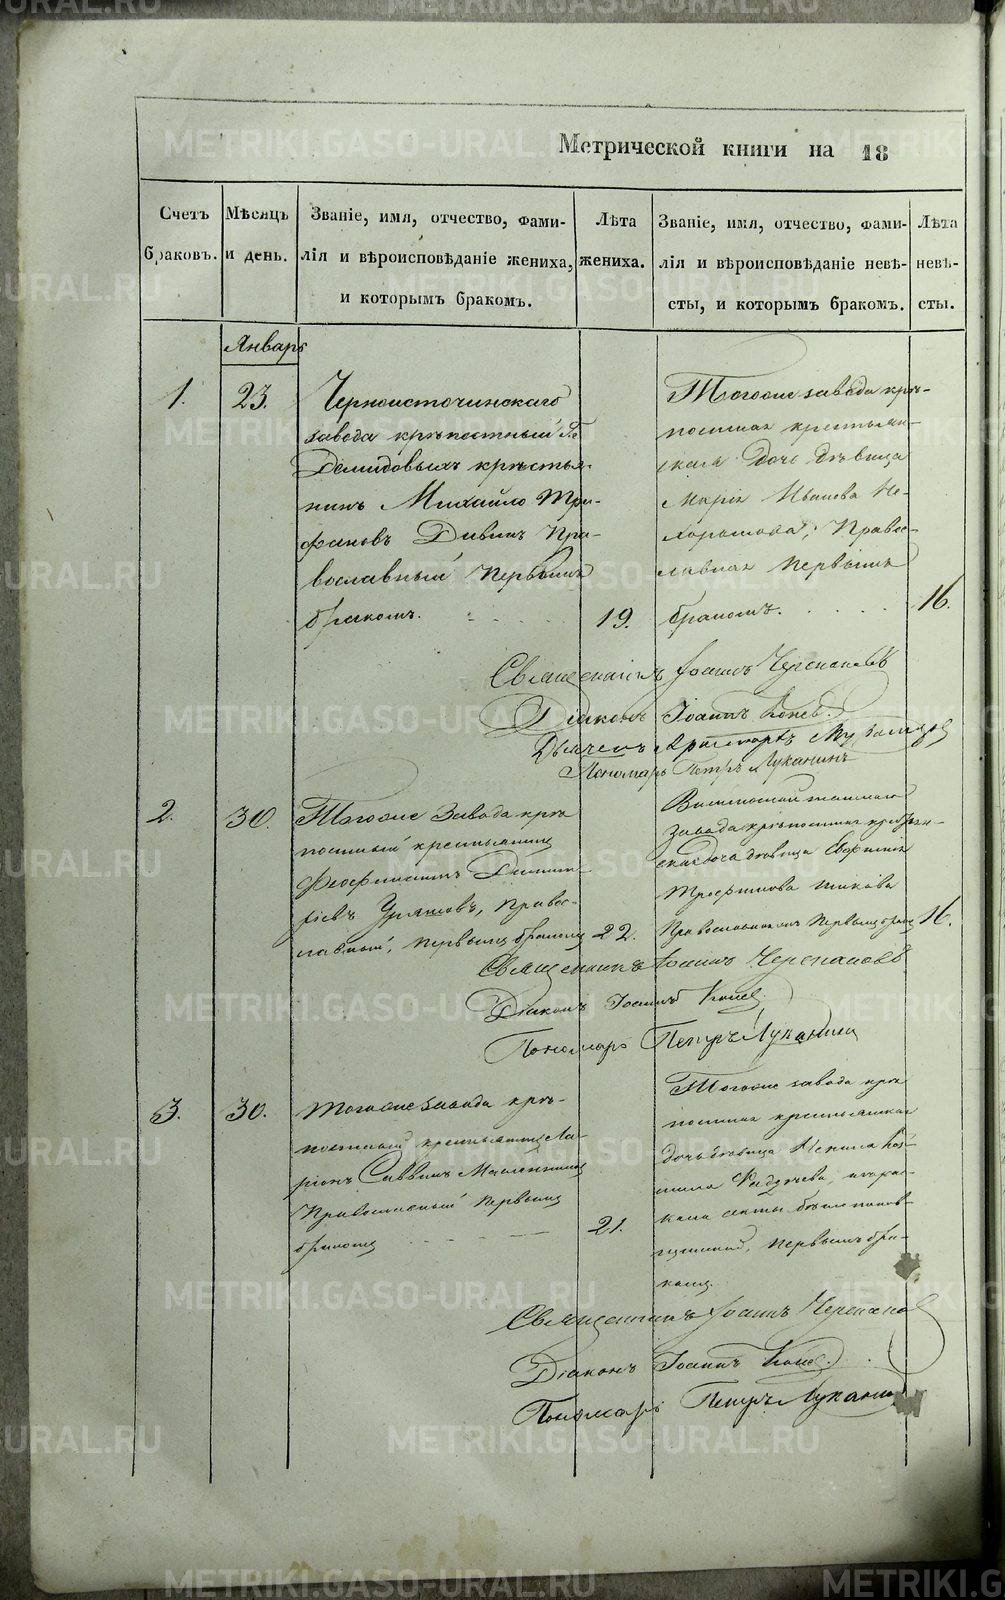 Метрической книги на 18
Счетъ браковъ.
Мѣсяцъ и день.
Званіе, имя, отчество, фами-
лія и вѣроисповѣданіе жениха,
и которымъ бракомъ.
Лѣта жениха.
Званіе, имя, отчество, фами-
лія и вѣроисповѣданіе невѣ-
сты, и которымъ бракомъ.
Лѣта невѣ-
сты.
Январь
1.
23.
Черноисточинскаго
завода крѣпостный Гг
Демидовыхъ крестья-
нинъ Михайло Три-
фановъ Дивинъ Пра-
вославный Первымъ
бракомъ.
19.
Тогоже завода крѣ-
постная крестьян-
ская дочь дѣвица
Марія Иванова Не-
хорошкова, Правос-
лавная Первымъ
бракомъ.
16.
Священникъ Іоаннъ Черепановъ
Діаконъ Іоаннъ Коневъ.
Дьячекъ
Пономарь Петръ Луканинъ
2.
30.
Тогоже Завода крѣ
постный крестьянинъ
Феофилактъ Димит-
ріевъ, Правос-
лавный, первымъ бракомъ
22.
завода крѣпостная крестьян-
ская дочь дѣвица Евфимія
Трофимова
Православная Первымъ бракомъ
16.
Священникъ Іоаннъ Черепановъ
Діаконъ Іоаннъ Коневъ
Пономарь Петръ Луканинъ
3.
30.
Тогоже завода крѣ-
постный крестьянинъ Ла-
ріонъ Саввинъ Масленниковъ
Православный Первымъ
бракомъ
21.
Тогоже завода крѣ
постная крестьянская
дочь дѣвица Ксенія
секты
первымъ бра-
комъ.
Священникъ Іоаннъ Черепановъ
Діаконъ Іоаннъ Коневъ.
Пономарь Петръ Луканинъ
METRIKI.GASO-URAL.RU